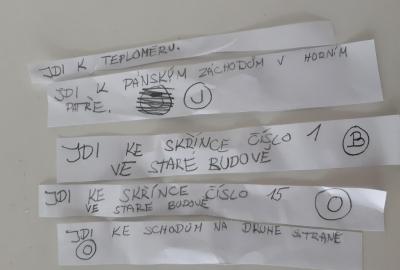 JDI K TEPLOMĚRU.
JDI K PÁNSKÝM ZÁCHODŮM V HORNÍM
PATŘE. J
JDI KE SKŘÍNCE ČÍSLO 1 B
VE STARÉ BUDOVĚ
JDI KE SKŘÍNCE ČÍSLO 15 O
VE STARÉ BUDOVĚ
JDI KE SCHODŮM NA DRUHÉ STRANĚ
O